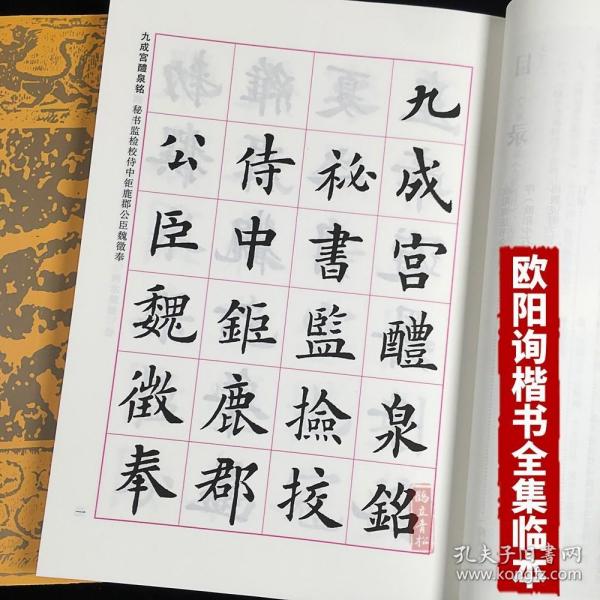 九成宫醴泉铭 秘书监检校侍中钜鹿郡公臣魏徵奉
九成宮醴泉銘
祕書監撿挍
侍中鉅鹿郡
公臣魏徵奉
一
目录
欧阳询楷书全集临本
鹤立青松
孔夫子旧书网
kongfz.com